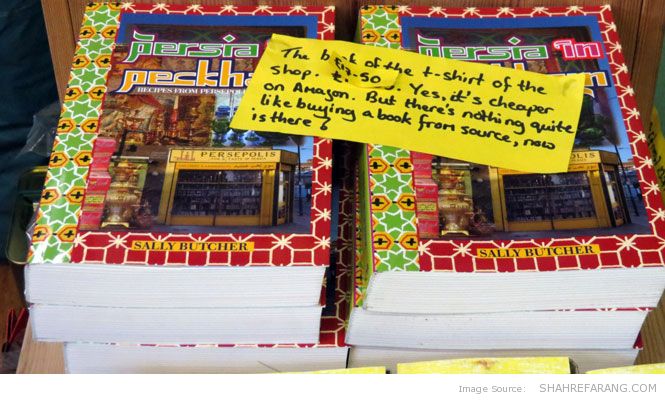 Persia
Peckha
RECIPES FROM PERSEPOL
PERSEPOLIS
SALLY BUTCHER
Persia in
m
PERSEPOLIS
SALLY BUTCHER
The book of the t-shirt of the
shop. Yes, it's cheaper
on Amazon. But there's nothing quite
like buying a book from source, now
is there?
Image Source: SHAHREFARANG.COM